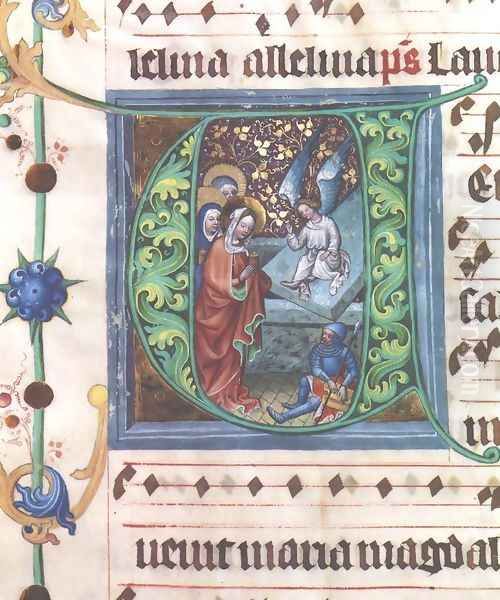 leluia alleluia ps Lau
sa
uenit maria magdal